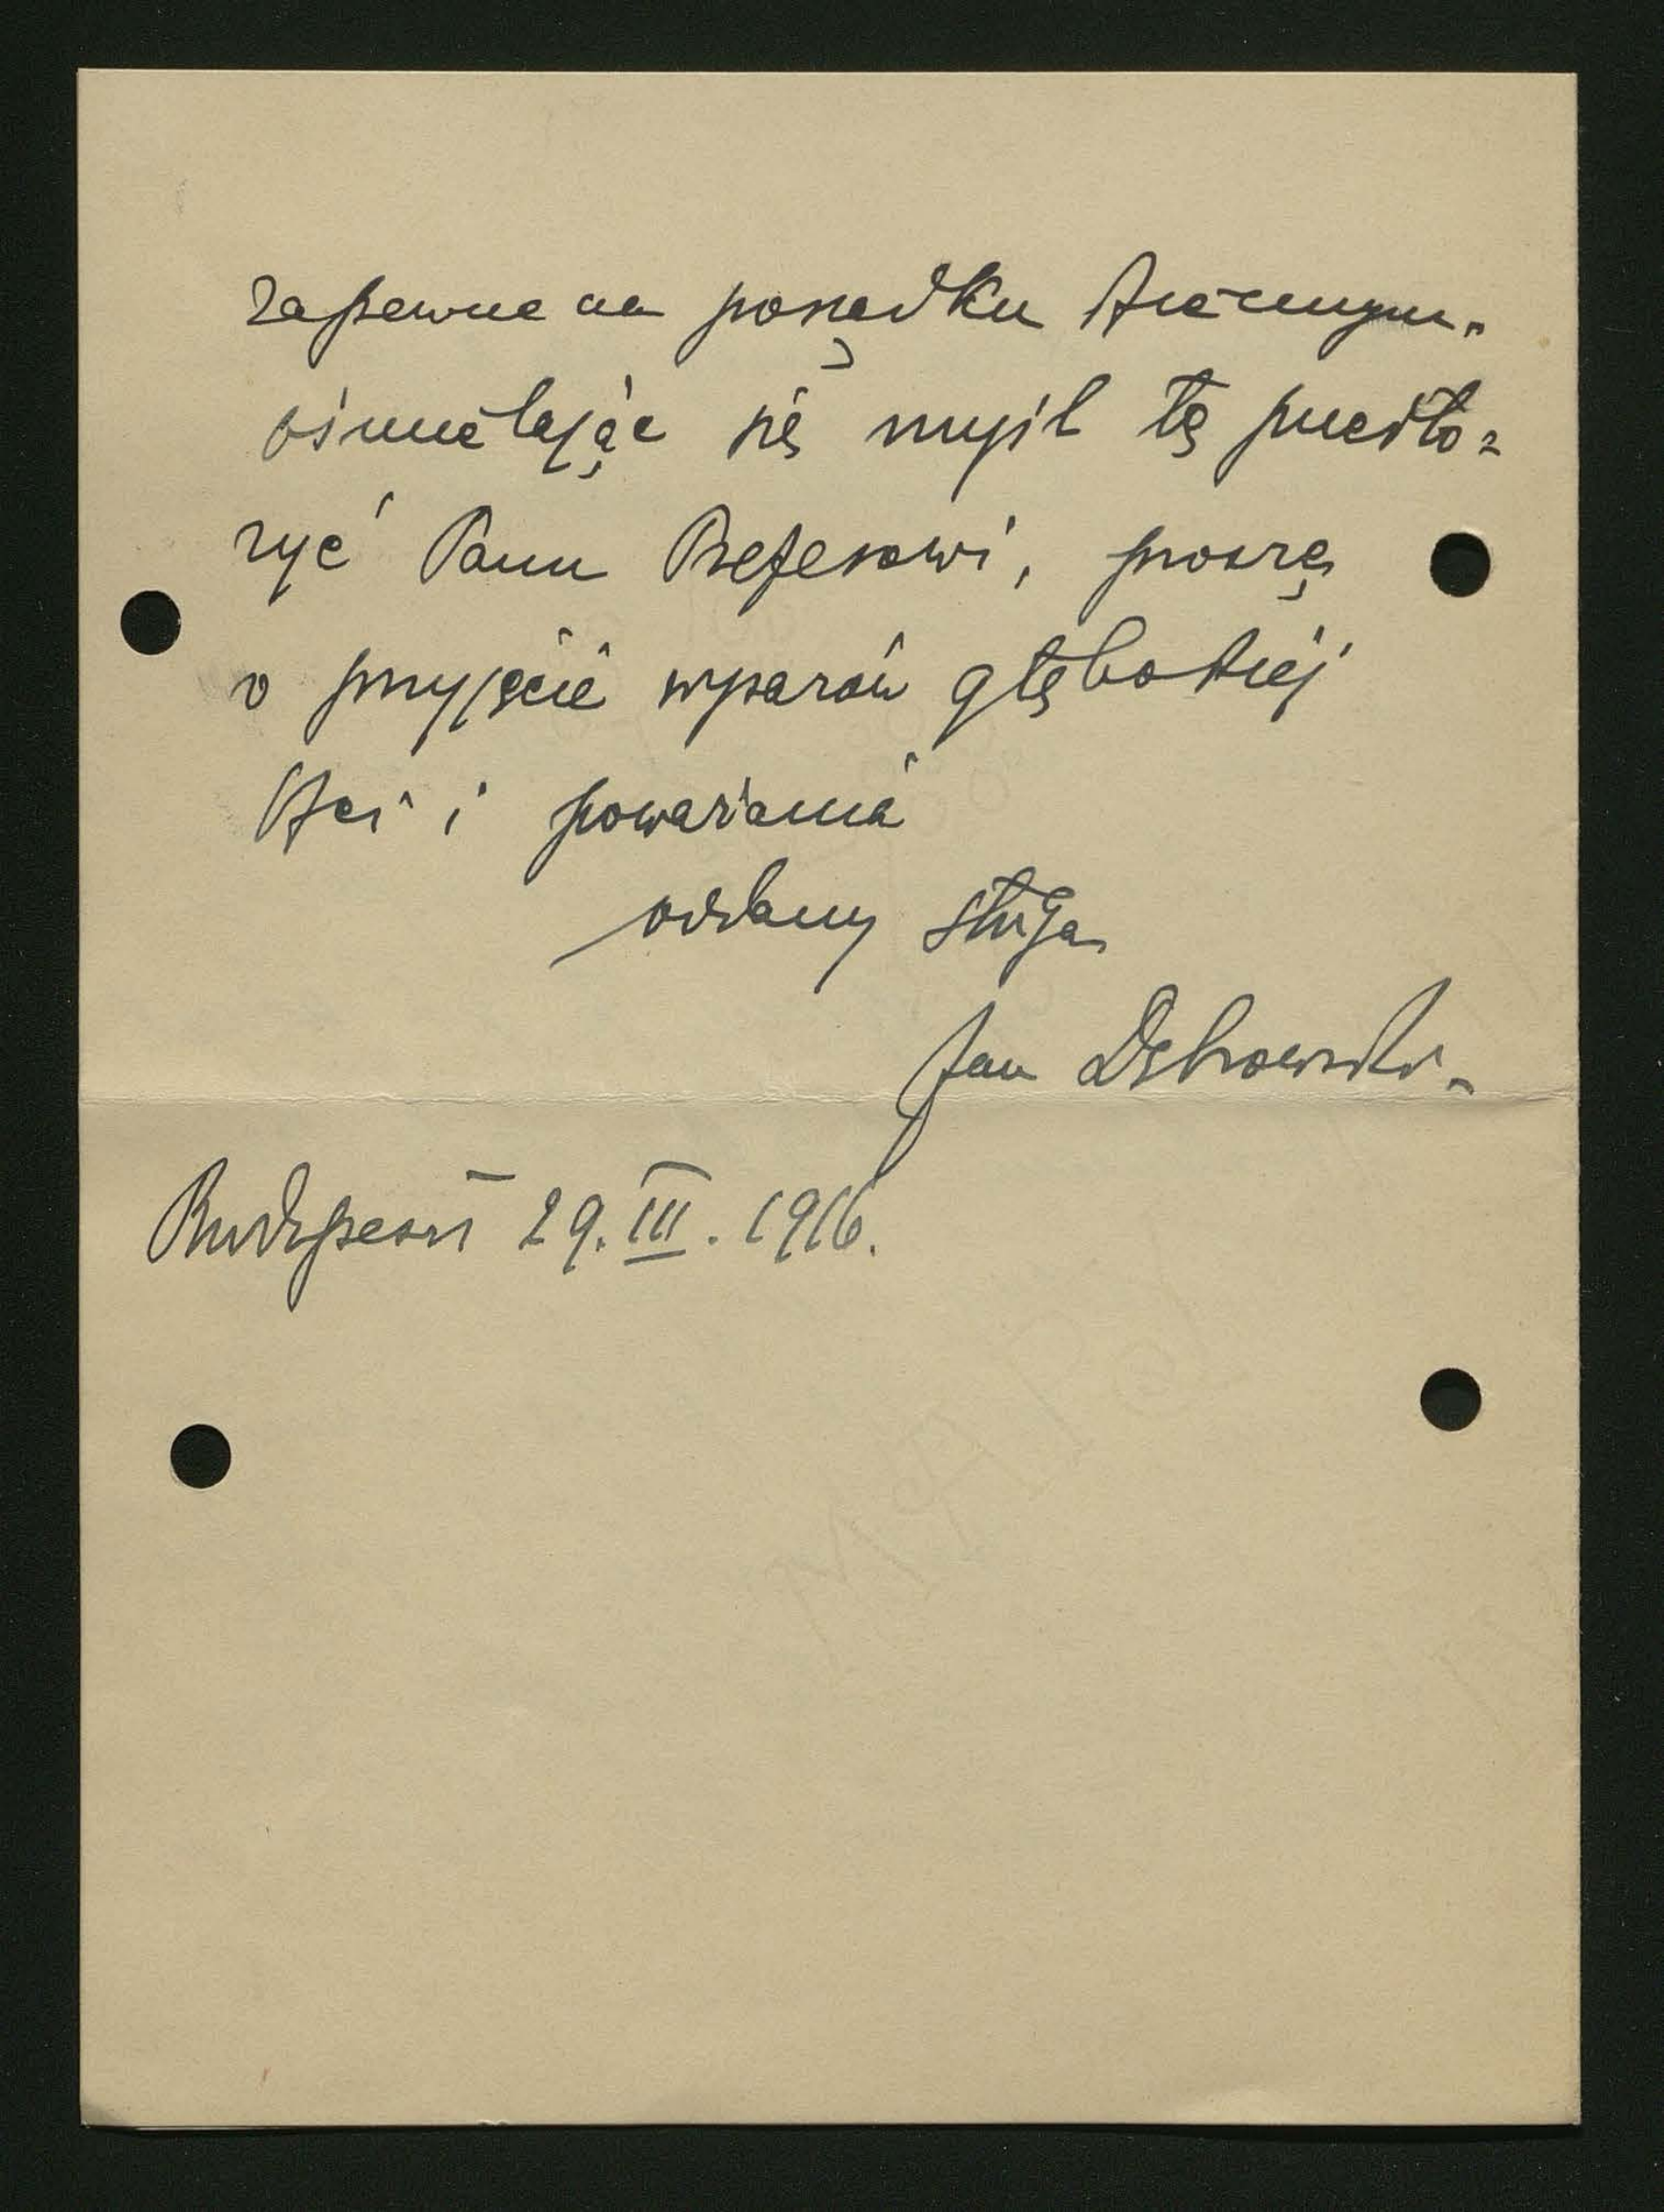 zapewne na porządku dziennym.
ośmielając się myśl tę przedło-
żyć Panu Prezesowi, proszę
o przyjęcie wyrazów głębokiej
czci i poważania
oddany sługa
Jan Dąbrowski.
Budapeszt 29.III.1916.